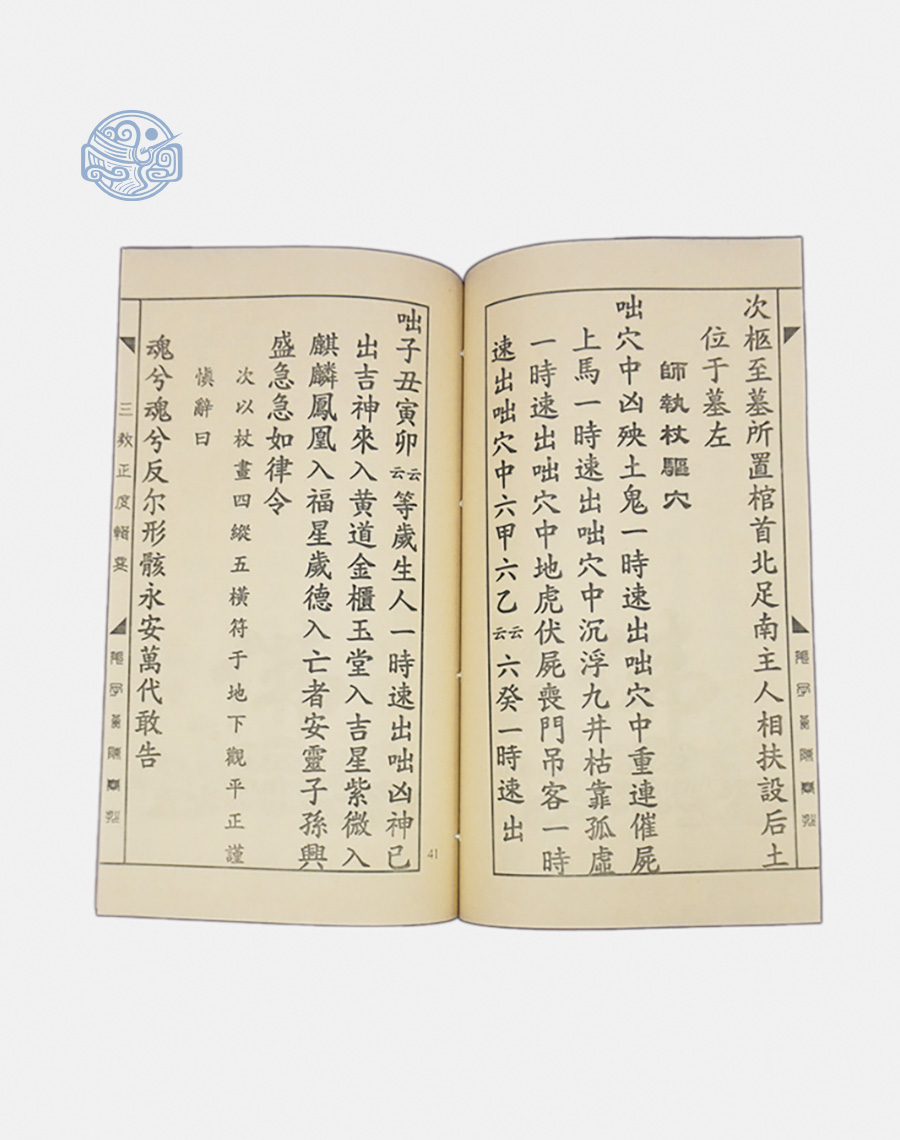 次柩至墓所置棺首北足南主人相扶設后土
位于墓左
師執杖驅穴
咄穴中凶殃土鬼一時速出咄穴中重連催屍
上馬一時速出咄穴中沉浮九井枯靠孤虛
一時速出咄穴中地虎伏屍喪門吊客一時
速出咄穴中六甲六乙云云六癸一時速出
咄子丑寅卯云云等歲生人一時速出咄凶神已
出吉神來入黄道金櫃玉堂入吉星紫微入
麒麟鳳凰入福星歲德入亡者安靈子孫興
盛急急如律令
次以杖畫四縱五橫符于地下觀平正謹
愼辭曰
魂兮魂兮反尔形骸永安萬代敢告
三教正度輯要
41